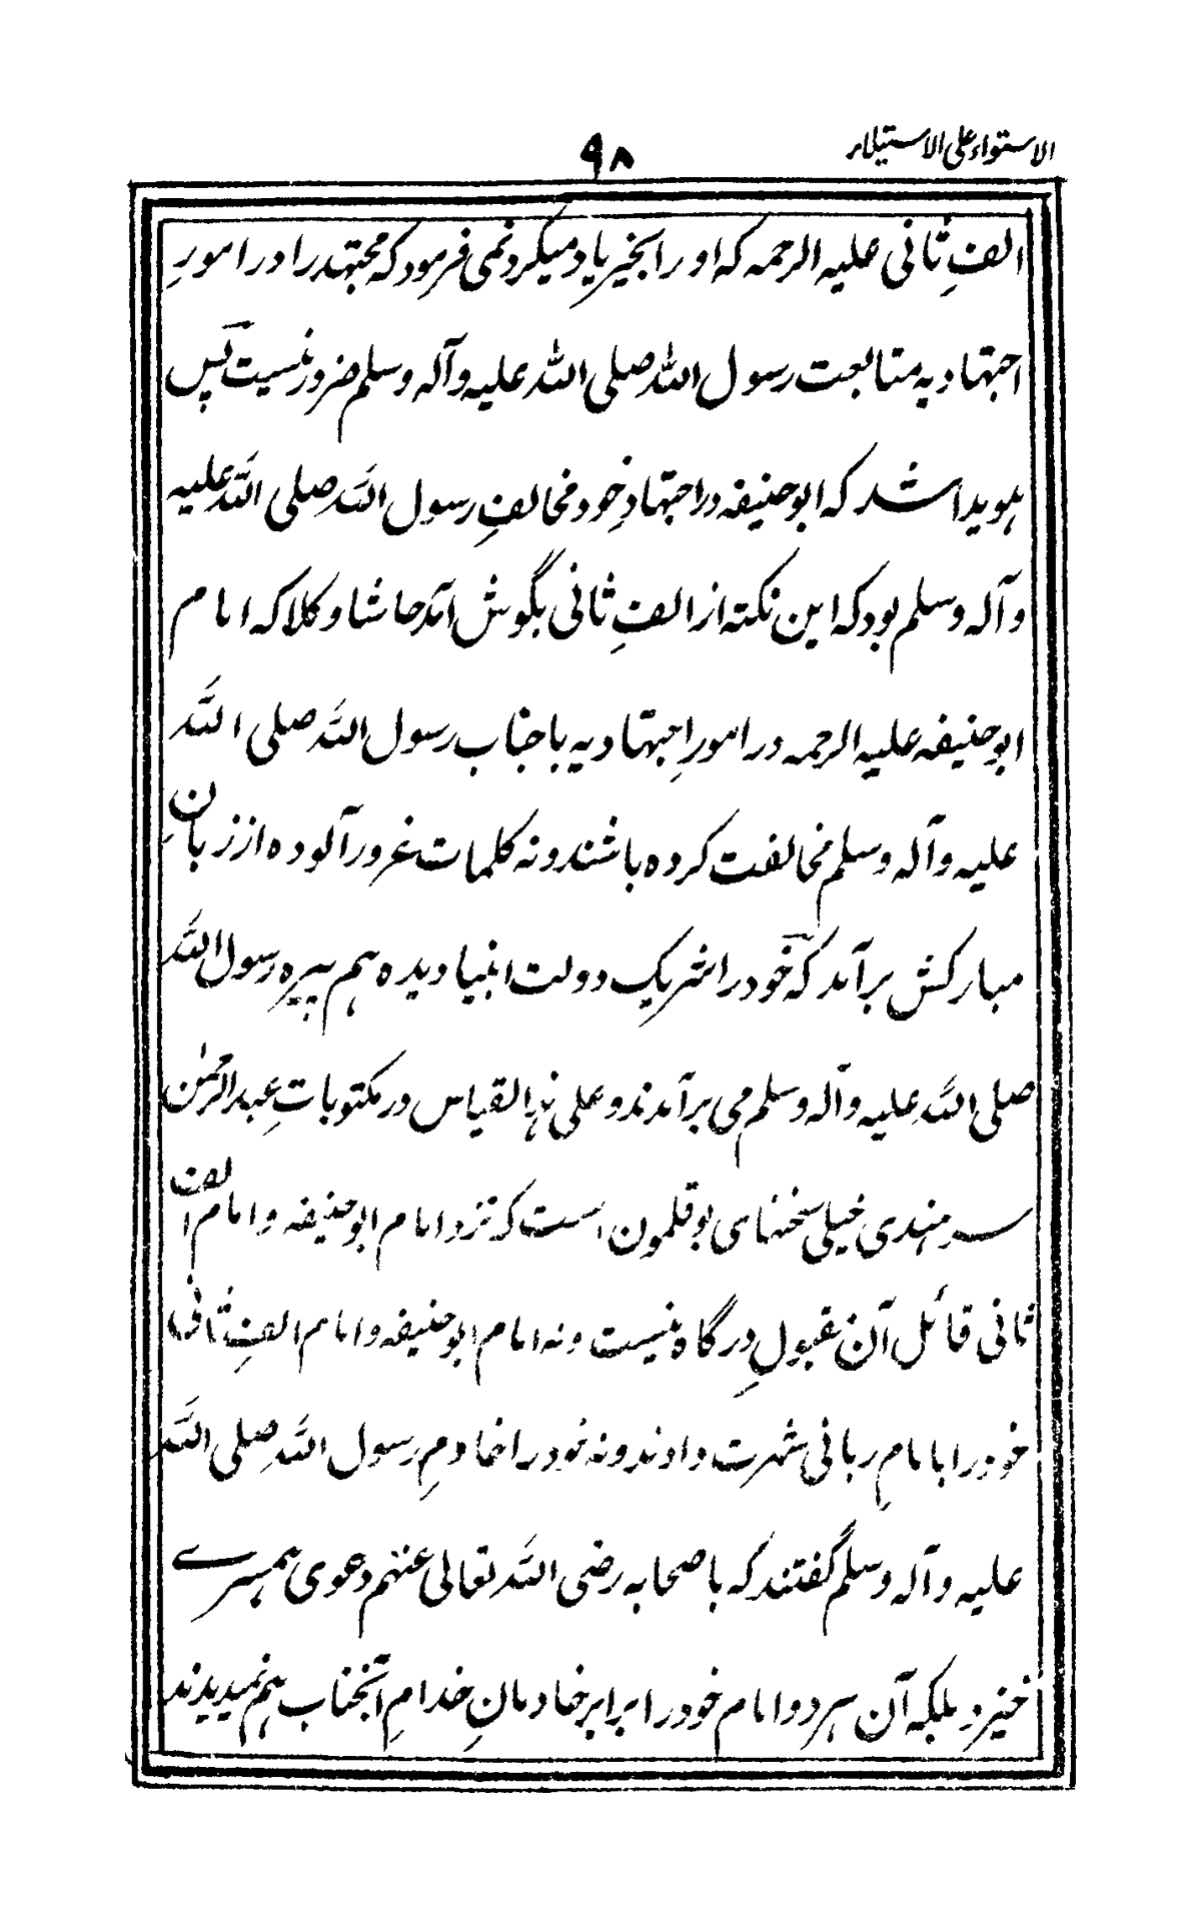 الاستواء علی الاستیلاء
۹۸
الفِ ثانی علیہ الرحمہ کہ او را بخیر یاد میکرد نمی فرمود کہ مجتہد را در امورِ
اجتہادیہ متابعت رسول اللہ صلی اللہ علیہ وآلہ وسلم ضرور نیست پس
ہویدا شد کہ ابوحنیفہ در اجتہادِ خود مخالفِ رسول اللہ صلی اللہ علیہ
وآلہ وسلم بود کہ این نکتہ از الفِ ثانی بگوش آمد حاشا وکلا کہ امام
ابوحنیفہ علیہ الرحمہ در امورِ اجتہادیہ با جناب رسول اللہ صلی اللہ
علیہ وآلہ وسلم مخالفت کردہ باشند ونہ کلمات غرور آلودہ از زبانِ
مبارکش برآمد کہ خود را شریک دولت انبیا دیدہ ہم پیرہ رسول اللہ
صلی اللہ علیہ وآلہ وسلم می برآمدند وعلی ہذا القیاس در مکتوباتِ عبدالرحمٰن
سرہندی خیلی سخنہای بوقلمون است کہ نزد امام ابوحنیفہ وامام الف
ثانی قائل آن مقبولِ درگاہ نیست ونہ امام ابوحنیفہ وامام الفِ ثانی
خود را بامامِ ربانی شہرت دادند ونہ خود را خادمِ رسول اللہ صلی اللہ
علیہ وآلہ وسلم گفتند کہ با صحابہ رضی اللہ تعالی عنہم دعوی ہمسرے
خیزد بلکہ آن ہردو امام خود را برابر خادمانِ خدامِ آنجناب ہم نمیدیدند